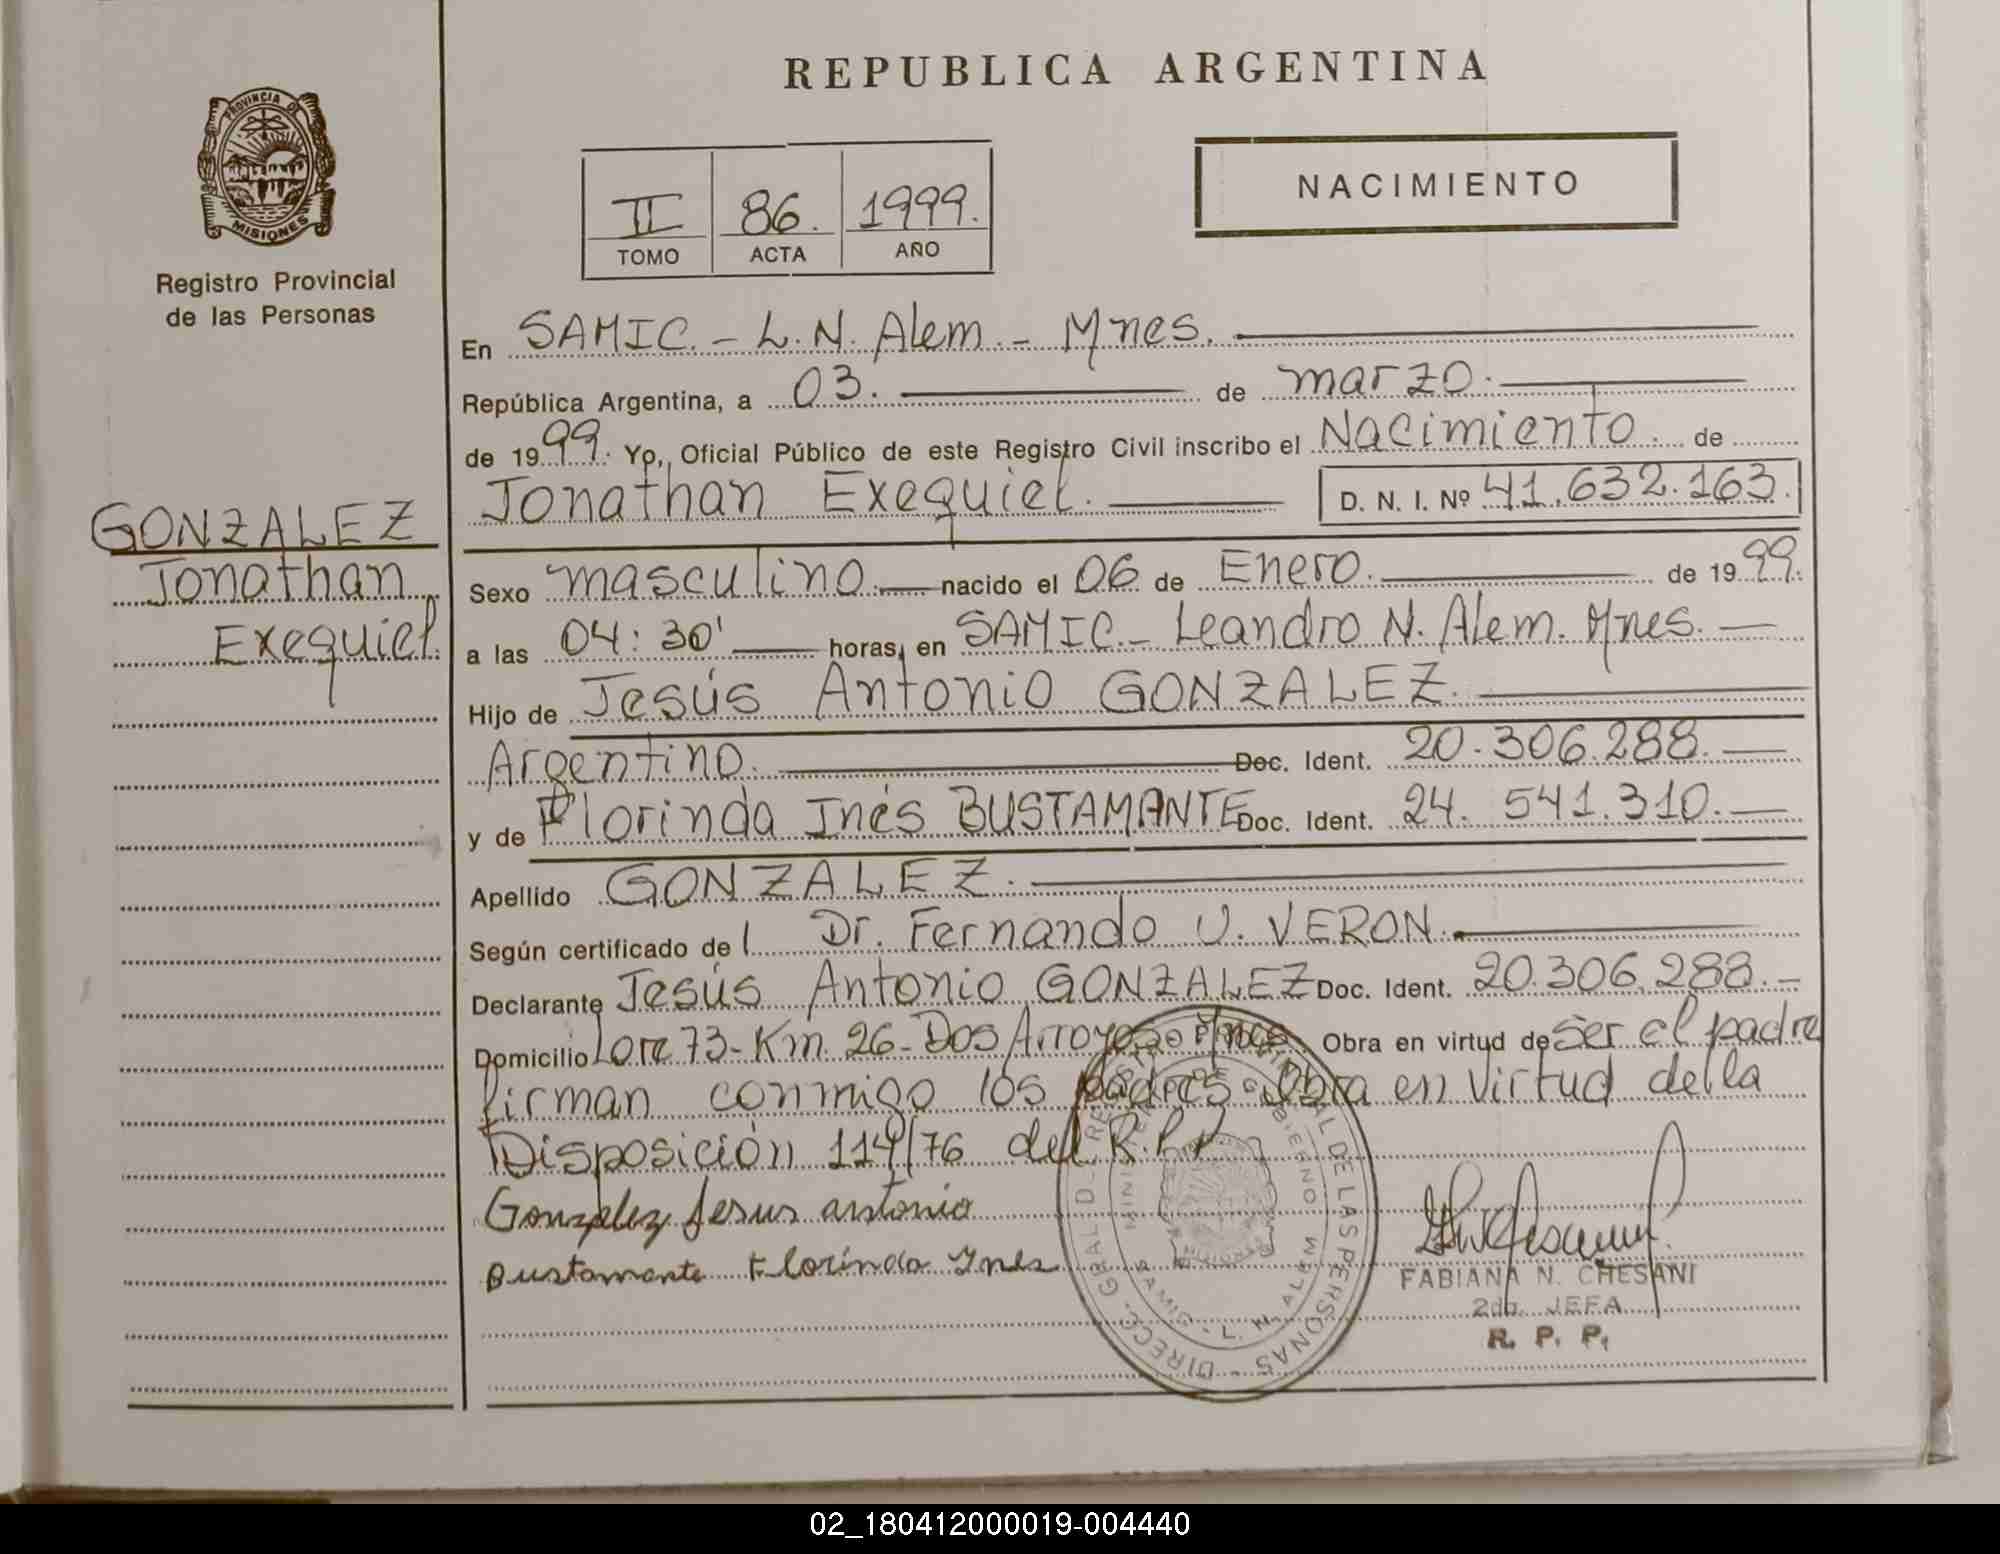 REPUBLICA ARGENTINA
PROVINCIA DE
MISIONES
Registro Provincial
de las Personas
II 86. 1999.
TOMO ACTA AÑO
NACIMIENTO
GONZALEZ
Jonathan
Exequiel.
En SAMIC. - L. N. Alem. - Mnes.
República Argentina, a 03. de marzo.
de 1999. Yo, Oficial Público de este Registro Civil inscribo el Nacimiento. de
Jonathan Exequiel. D. N. I. Nº 41.632.163.
Sexo masculino. nacido el 06 de Enero. de 1999.
a las 04:30' horas, en SAMIC. - Leandro N. Alem. Mnes.
Hijo de Jesús Antonio GONZALEZ.
Argentino. Doc. Ident. 20.306.288.
y de Florinda Inés BUSTAMANTE Doc. Ident. 24.541.310.
Apellido GONZALEZ.
Según certificado del Dr. Fernando U. VERON.
Declarante Jesús Antonio GONZALEZ Doc. Ident. 20.306.288.
Domicilio Lote 73 - Km. 26 - Dos Arroyos Mnes. Obra en virtud de ser el padre
firman conmigo los padres. Obra en virtud de la
Disposición 114/76 del R.P.P
Gonzalez Jesus antonio
Bustamante Florinda Ines
DIRECC. GRAL D. REGISTRO PROVINCIAL DE LAS PERSONAS
SAMIC - L. N. ALEM
FABIANA N. CHESANI
2da. JEFA
R. P. P.
02_180412000019-004440